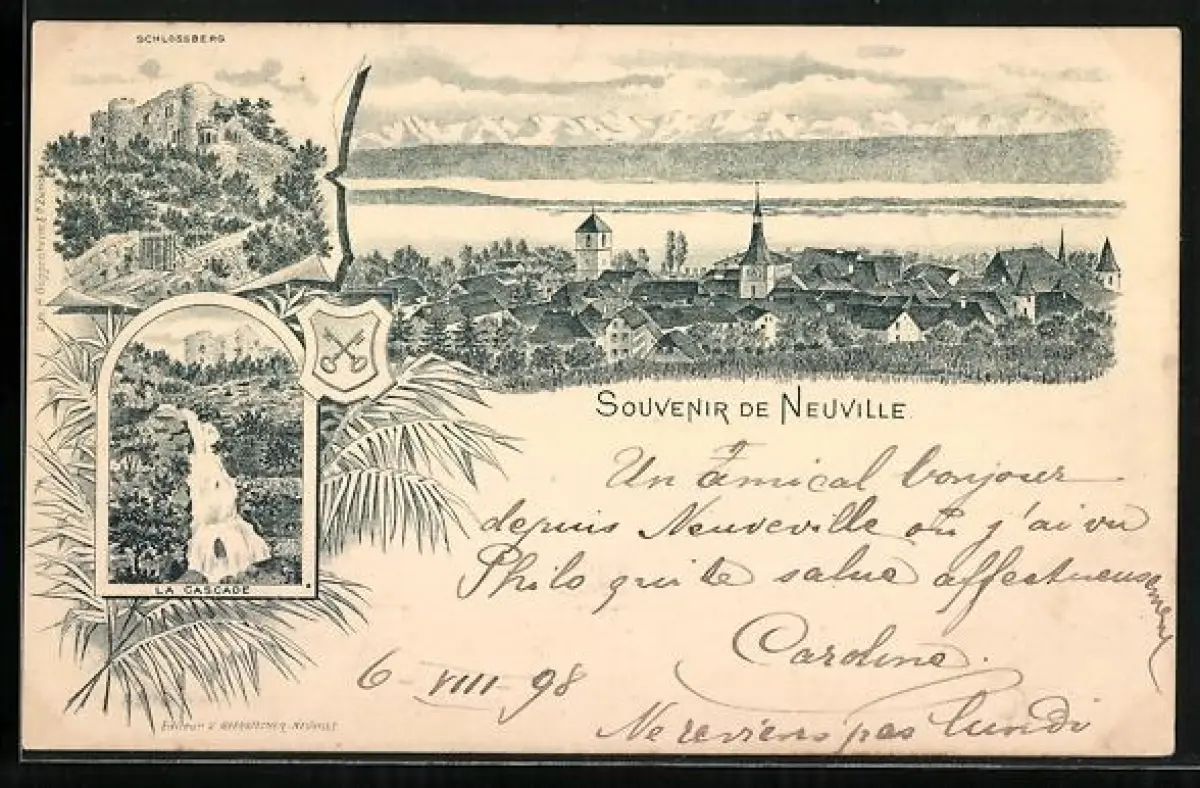 SCHLOSSBERG
SOUVENIR DE NEUVILLE
Un amical bonjour
depuis Neuveville où j'ai vu
Philo qui te salue affectueusement
Caroline.
6-VIII-98
Ne reviens pas lundi
LA CASCADE
Editeur NEUVILLE